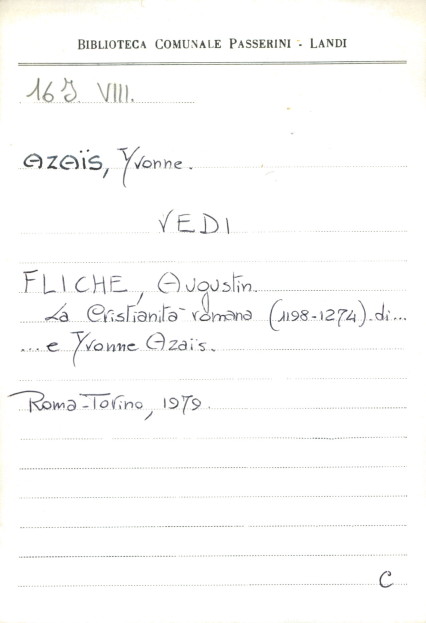 BIBLIOTECA COMUNALE PASSERINI - LANDI
16 J. VIII.
AZAÏS, Yvonne.
VEDI
FLICHE, Augustin.
La Cristianità romana (1198-1274). di...
... e Yvonne Azaïs.
Roma-Torino, 1979.
C